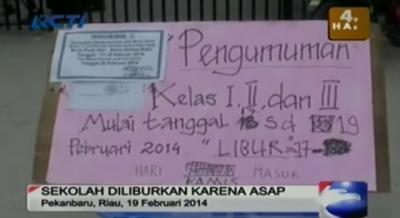 RCTI
4.
HA.
PENGUMUMAN
Tanggal
Februari 2014
"Pengumuman
Kelas I, II, dan III
Mulai tanggal sd 19
Februari 2014 "LIBUR 17-
HARI MASUK
KAMIS
SEKOLAH DILIBURKAN KARENA ASAP
Pekanbaru, Riau, 19 Februari 2014